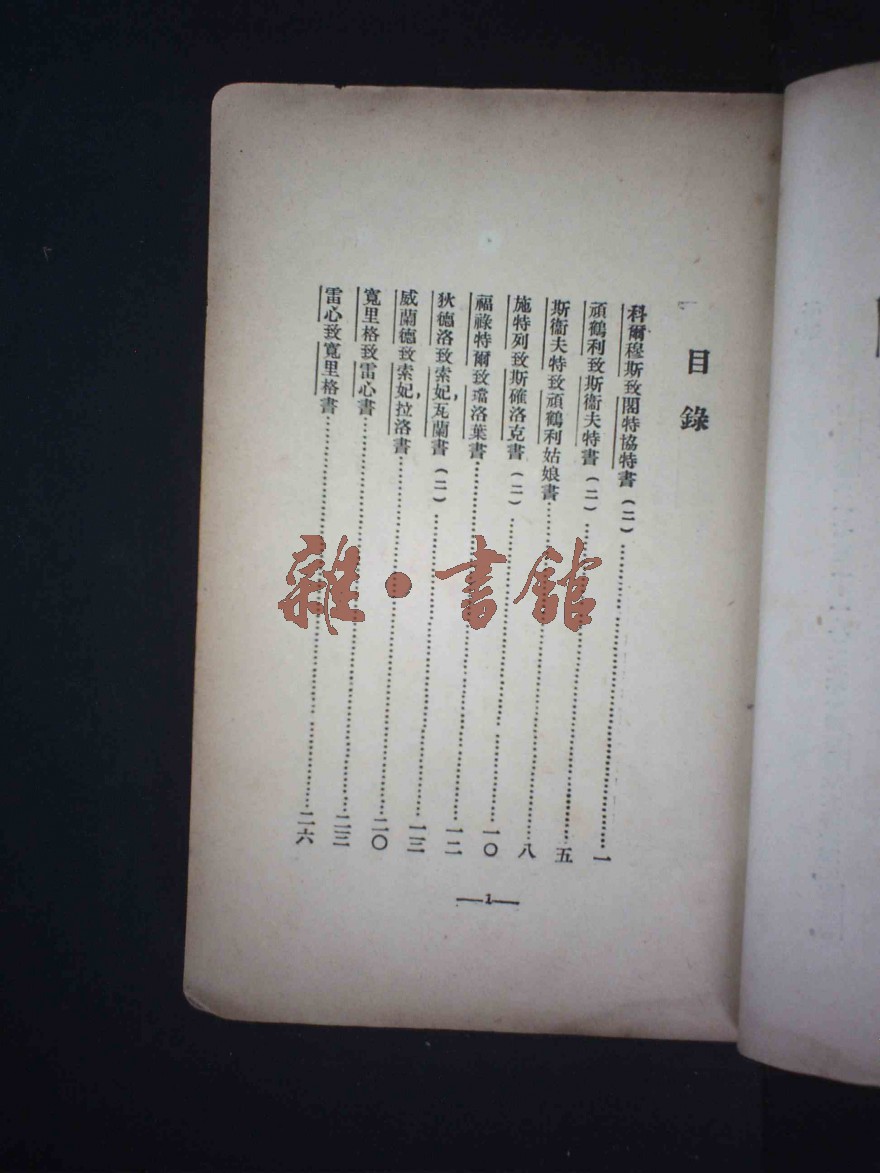 目錄
科爾穆斯致閣特協特書（二）……一
頑鶴利致斯衞夫特書（二）……五
斯衞夫特致頑鶴利姑娘書……八
施特列致斯確洛克書（二）……一〇
福祿特爾致璫洛葉書……一二
狄德洛致索妃，瓦蘭書（二）……一三
威蘭德致索妃，拉洛書……二〇
寬里格致雷心書……二三
雷心致寬里格書……二六
—1—
雜·書館